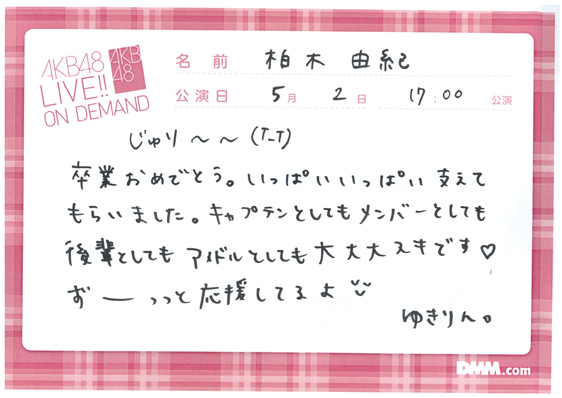 AKB48
LIVE!!
ON DEMAND
AKB
48
名前 柏木 由紀
公演日 5月 2日 17:00 公演
じゅり〜〜(T_T)
卒業おめでとう。いっぱいいっぱい支えて
もらいました。キャプテンとしてもメンバーとしても
後輩としてもアイドルとしても大大大スキです♡
ずーーっっと応援してるよ
ゆきりん。
DMM.com